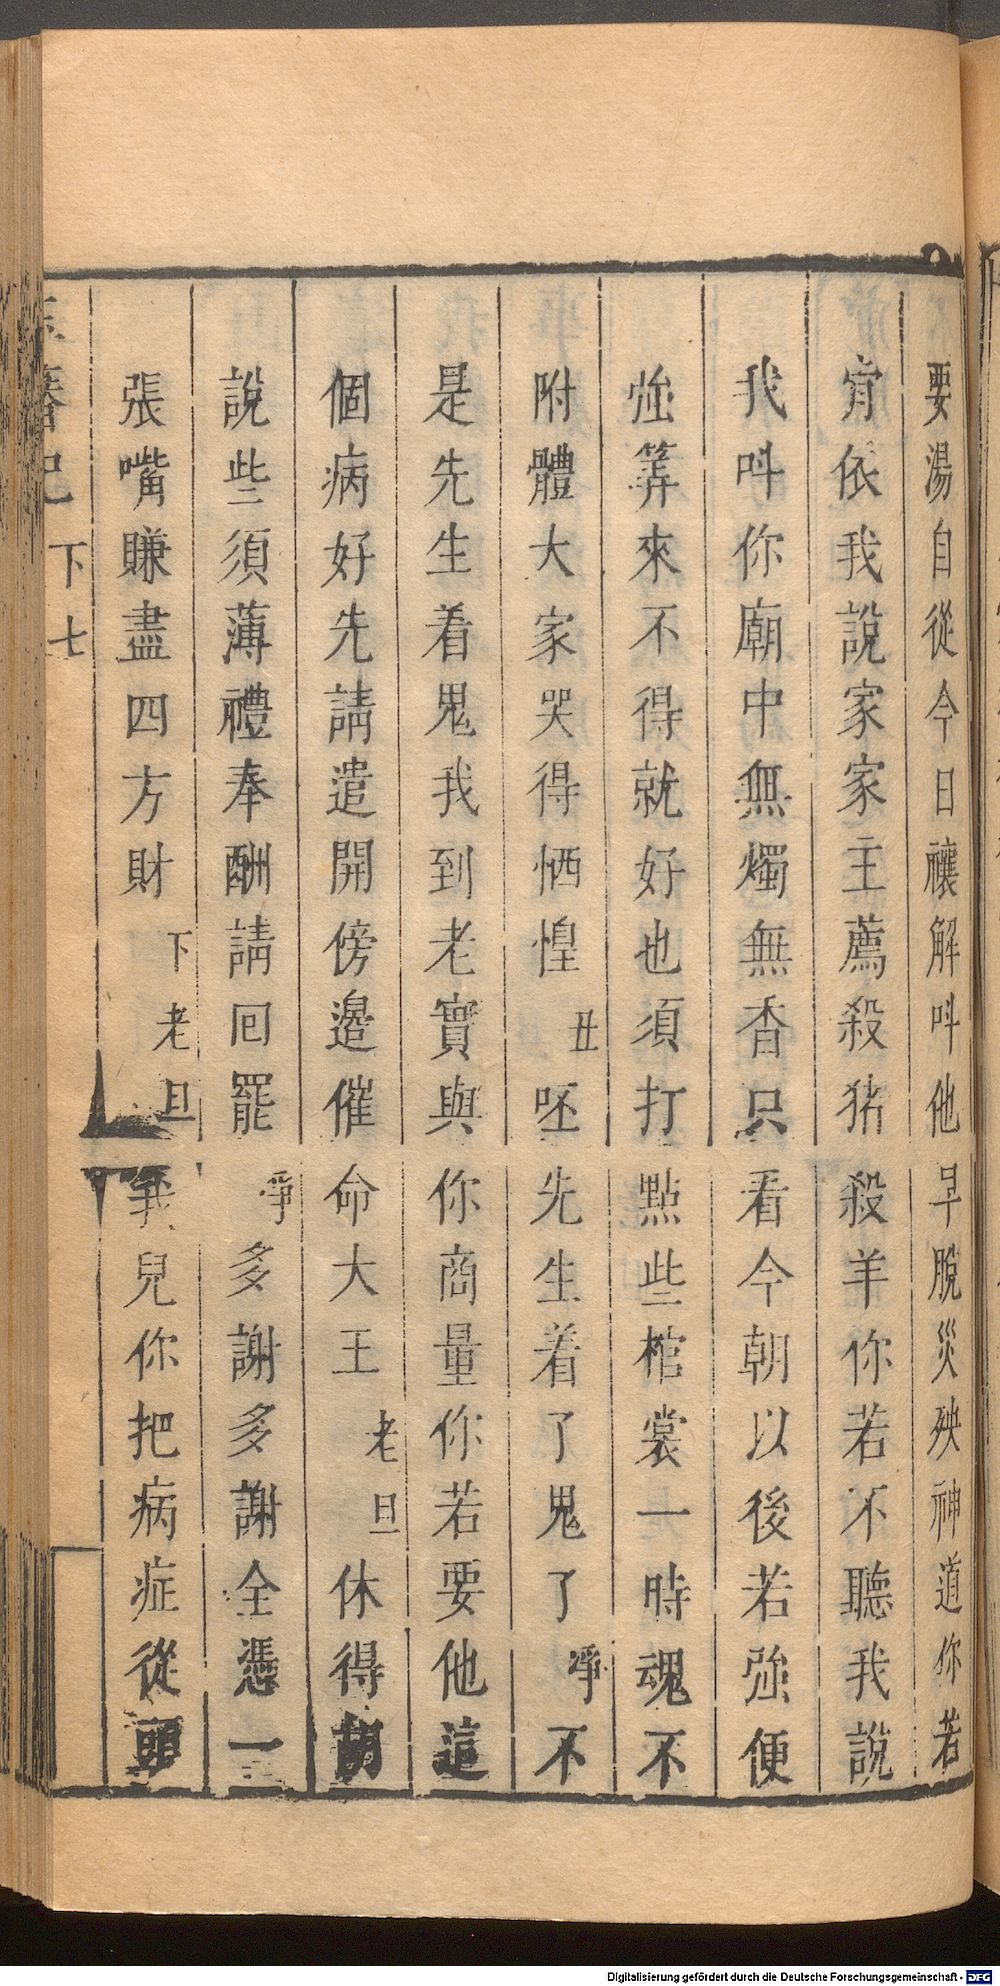 要湯自從今日禳解呌他早脫災殃神道你若
肯依我說家家主薦殺猪殺羊你若不聽我說
我呌你廟中無燭無香只看今朝以後若強便
強筭來不得就好也須打點些棺裳一時魂不
附體大家哭得恓惶丑呸先生着了鬼了淨不
是先生着鬼我到老實與你商量你若要他這
個病好先請遣開傍邉催命大王老旦休得胡
說些須薄禮奉酬請囘罷淨多謝多謝全憑一
張嘴賺盡四方財下老旦我兒你把病症從頭
玉簪記 下 七
Digitalisierung gefördert durch die Deutsche Forschungsgemeinschaft - DFG